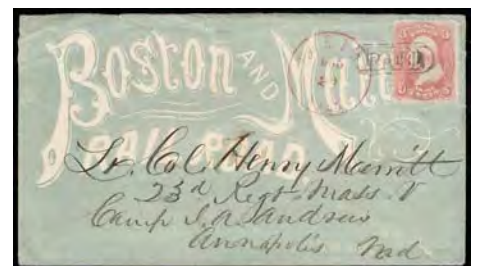 Boston AND Maine
RAILROAD
PAID
Lt. Col. Henry Merritt
23d Regt. Mass. V
Camp J. A. Andrew
Annapolis Md